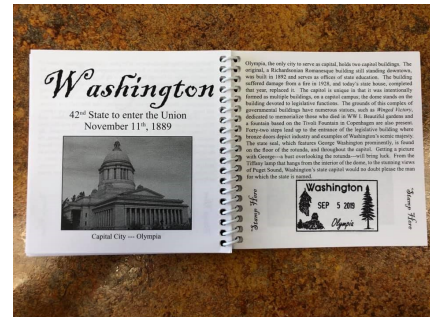 Washington
42nd State to enter the Union
November 11th, 1889
Capital City --- Olympia
Olympia, the only city to serve as capital, holds two capitol buildings. The
original, a Richardsonian Romanesque building still standing downtown,
was built in 1892 and serves as offices of state education. The building
suffered damage from a fire in 1928, and today's state house, completed
that year, replaced it. The capitol is unique in that it was intentionally
formed as multiple buildings, on a capitol campus, the dome stands on the
building devoted to legislative functions. The grounds of this complex of
governmental buildings have numerous statues, such as Winged Victory,
dedicated to memorialize those who died in WW I. Beautiful gardens and
a fountain based on the Tivoli Fountain in Copenhagen are also present.
Forty-two steps lead up to the entrance of the legislative building where
bronze doors depict industry and examples of Washington's scenic majesty.
The state seal, which features George Washington prominently, is found
on the floor of the rotunda, and throughout the capitol. Getting a picture
with George—a bust overlooking the rotunda—will bring luck. From the
Tiffany lamp that hangs from the interior of the dome, to the stunning views
of Puget Sound, Washington's state capitol would no doubt please the man
for which the state is named.
Stamp Here
Washington
SEP 5 2019
Olympia
Stamp Here